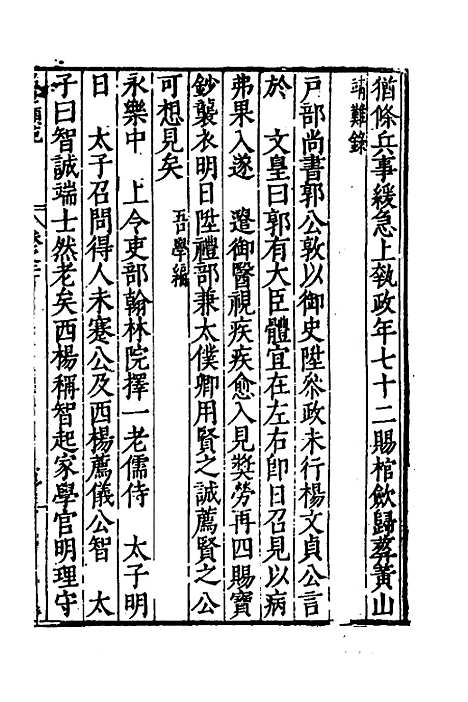 猶條兵事緩急上執政年七十二賜棺歛歸葬黃山
靖難錄
戸部尚書郭公敦以御史陞叅政未行楊文貞公言
於　文皇曰郭有大臣體宜在左右卽日召見以病
弗果入遂　遣御醫視疾疾愈入見奬勞再四賜寶
鈔襲衣明日陞禮部兼太僕卿用賢之誠薦賢之公
可想見矣
吾學編
永樂中　上令吏部翰林院擇一老儒侍　太子明
日　太子召問得人未蹇公及西楊薦儀公智　太
子曰智誠端士然老矣西楊稱智起家學官明理守